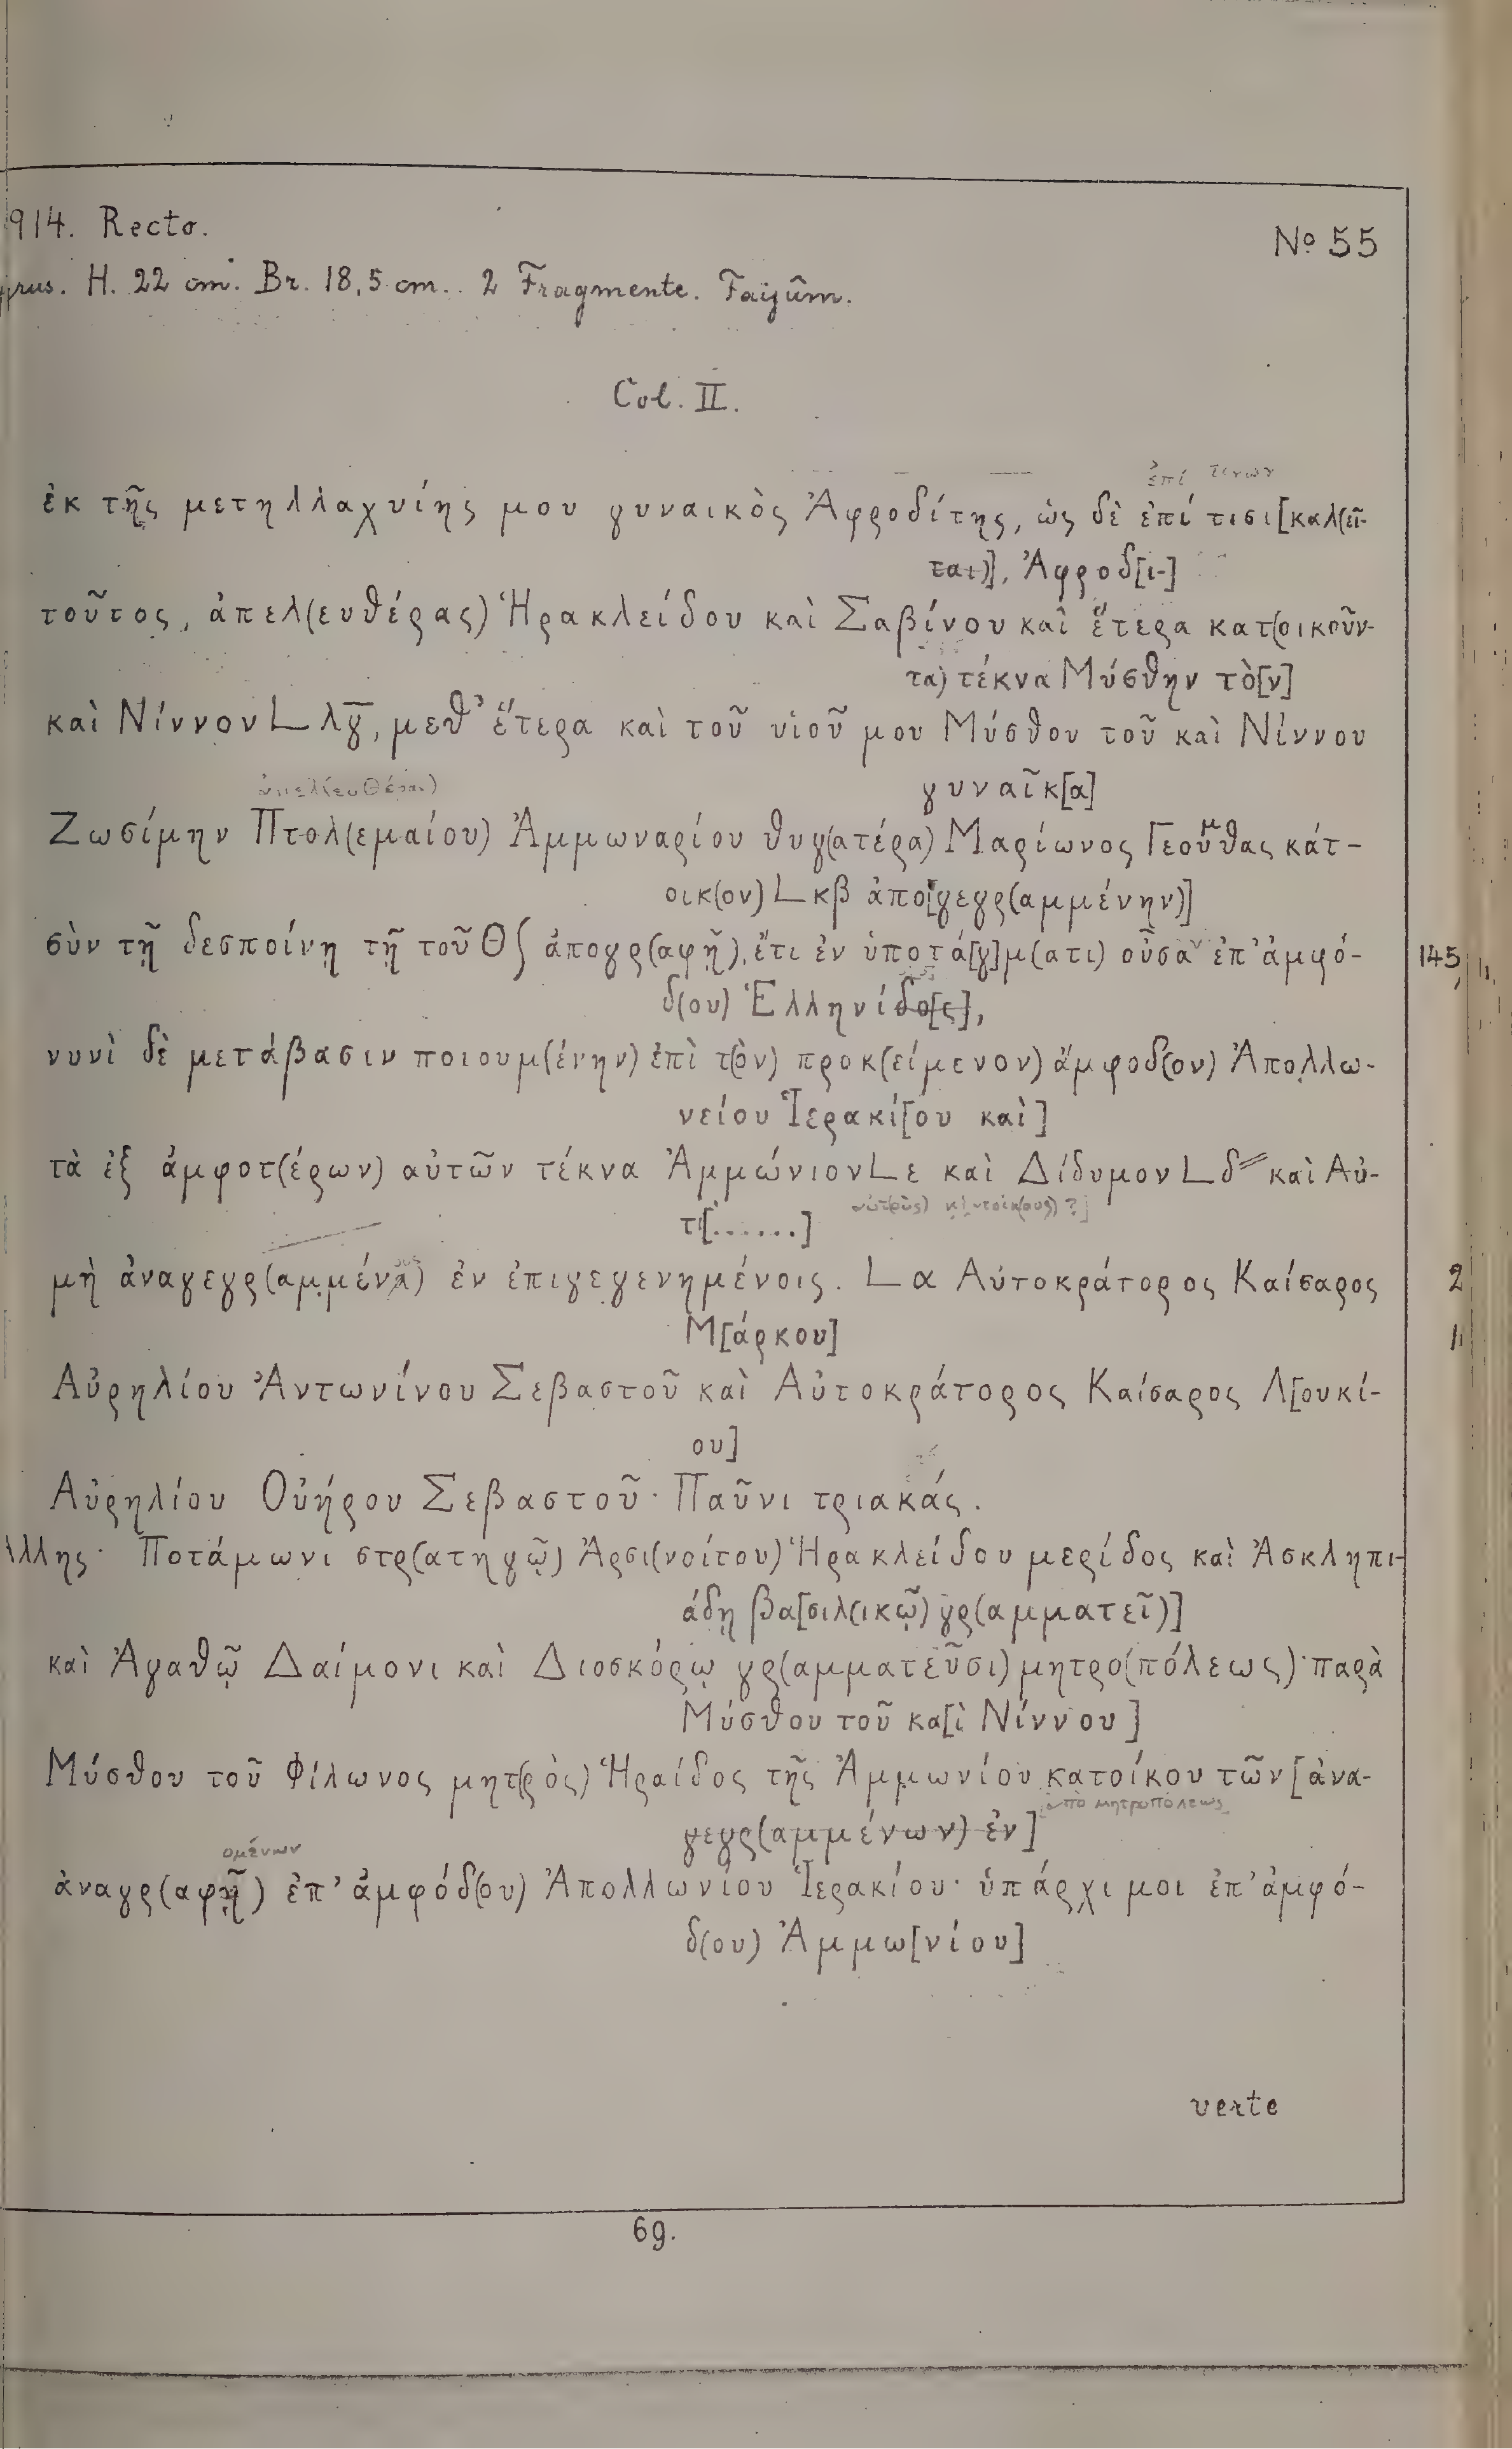 914. Recto.
No 55
H. 22 cm. Br. 18,5 cm. 2 Fragmente. Faijûm.
Col. II.
ἐπί τινων
ἐκ τῆς μετηλλαχυίης μου γυναικὸς Ἀφροδίτης, ὡς δὲ ἐπί τισι[καλ(εῖ-
ται)], Ἀφροδ[ι-]
τοῦτος, ἀπελ(ευθέρας) Ἡρακλείδου καὶ Σαβίνου καὶ ἕτερα κατ(οικοῦν-
τα) τέκνα Μύσθην τὸ[ν]
καὶ Νίννον L λγ̅, μεθ' ἕτερα καὶ τοῦ υἱοῦ μου Μύσθου τοῦ καὶ Νίννου
γυναῖκ[α]
ἀπελ(ευθέραν)
Ζωσίμην Πτολ(εμαίου) Ἀμμωναρίου θυγ(ατέρα) Μαρίωνος Γεούθας κάτ-
μ
οικ(ον) L κβ ἀπο[γεγρ(αμμένην)]
σὺν τῇ δεσποίνῃ τῇ τοῦ Θ ʃ ἀπογρ(αφῇ), ἔτι ἐν ὑποτά[γ]μ(ατι) οὖσα ἐπ' ἀμφό-
145
δ(ου) Ἑλληνίδο[ς],
νυνὶ δὲ μετάβασιν ποιουμ(ένην) ἐπὶ τ(ὸν) προκ(είμενον) ἄμφοδ(ον) Ἀπολλω-
νείου Ἱερακί[ου καὶ]
τὰ ἐξ ἀμφοτ(έρων) αὐτῶν τέκνα Ἀμμώνιον L ε καὶ Δίδυμον L δ⸗ καὶ Αὐ-
τ[......]
μὴ ἀναγεγρ(αμμένα) ἐν ἐπιγεγενημένοις. L α Αὐτοκράτορος Καίσαρος
2
Μ[άρκου]
Αὐρηλίου Ἀντωνίνου Σεβαστοῦ καὶ Αὐτοκράτορος Καίσαρος Λ[ουκί-
ου]
Αὐρηλίου Οὐήρου Σεβαστοῦ· Παῦνι τριακάς.
λλης· Ποτάμωνι στρ(ατηγῷ) Ἀρσι(νοίτου) Ἡρακλείδου μερίδος καὶ Ἀσκληπι-
άδῃ βα[σιλ(ικῷ) γρ(αμματεῖ)]
καὶ Ἀγαθῷ Δαίμονι καὶ Διοσκόρῳ γρ(αμματεῦσι) μητρο(πόλεως)· παρὰ
Μύσθου τοῦ κα[ὶ Νίννου]
Μύσθου τοῦ Φίλωνος μητ(ρὸς) Ἡραίδος τῆς Ἀμμωνίου κατοίκου τῶν [ἀνα-
ἀπὸ μητροπόλεως
γεγρ(αμμένων) ἐν]
ομένων
ἀναγρ(αφῇ) ἐπ' ἀμφόδ(ου) Ἀπολλωνίου Ἱερακίου· ὑπάρχι μοι ἐπ' ἀμφό-
δ(ου) Ἀμμω[νίου]
verte
69.